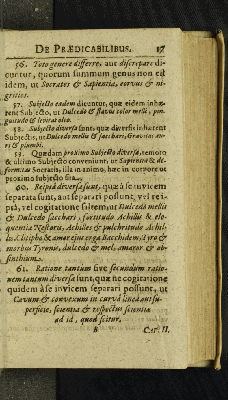 DE PRÆDICABILIBUS. 17
56. Toto genere differre, aut discrepare di-
cuntur, quorum summum genus non est
idem, ut Socrates & Sapientia, corvus & ni-
grities.
57. Subjecto eadem dicuntur, quæ eidem inhæ-
rent Subjecto, ut Dulcedo & flavus color melli, pin-
guitudo & levitas oleo.
58. Subjecto diversa sunt, quæ diversis inhærent
Subjectis, ut Dulcedo mellis & sacchari, Gravitas au-
ri & plumbi.
59. Quædam proximo Subjecto diversa, remoto
& ultimo conveniunt, ut Sapientia & de-
formitas Socratis, illa in animo, hæc in corpore ut
proximo subjecto sita.
60. Reipsâ diversa sunt, quæ à se invicem
separata sunt, aut separari possunt, vel rei-
psâ, vel cogitatione saltem, ut Dulcedo mellis
& Dulcedo sacchari, fortitudo Achillis & elo-
quentia Nestoris, Achilles & pulchritudo Achil-
lis, Clitipho & amor ejus erga Bacchidem, Tyro &
morbus Tyronis, dulcedo & mel, amaror & ab-
sinthium.
61. Ratione tantum sive secundum ratio-
nem tantum diversa sunt, quæ ne cogitatione
quidem à se invicem separari possunt, ut
Cavum & convexum in curva linea aut su-
perficie, scientia & respectus scientiæ
ad id, quod scitur.
B CAP. II.